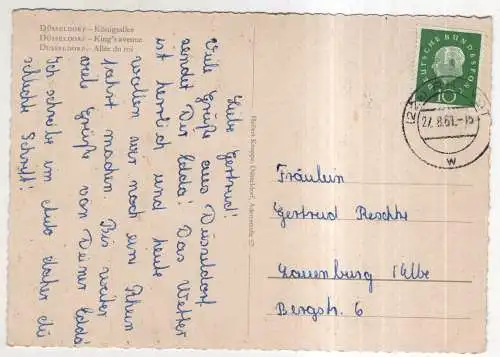 DÜSSELDORF – Königsallee
DÜSSELDORF – King's avenue
DÜSSELDORF – Allée du roi
Liebe Gertrud!
Viele Grüße aus Düsseldorf
sendet Dir Edda! Das Wetter
ist herrlich und heute
wollen wir noch ein Rhein-
fahrt machen. Bis weiter
viele Grüße von Deiner Edda
Ich schreibe im Auto daher die
schlechte Schrift!
DEUTSCHE BUNDESPOST
10
27.8.61.-15
W
Fräulein
Gertrud Reschke
Lauenburg /Elbe
Bergstr. 6